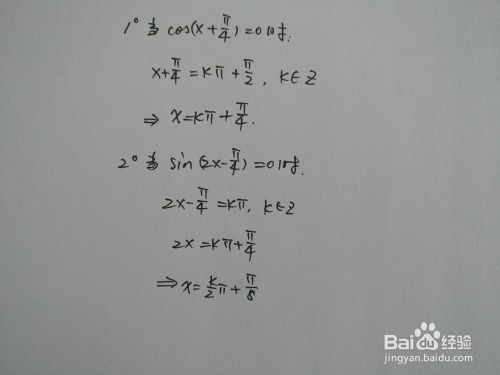 1° 当 cos(x+π/4)=0时.
x+π/4=kπ+π/2, k∈Z
⇒ x=kπ+π/4.
2° 当 sin(2x-π/4)=0时.
2x-π/4=kπ, k∈Z
2x=kπ+π/4
⇒x=k/2π+π/8
Bai 经验
jingyan.baidu.com